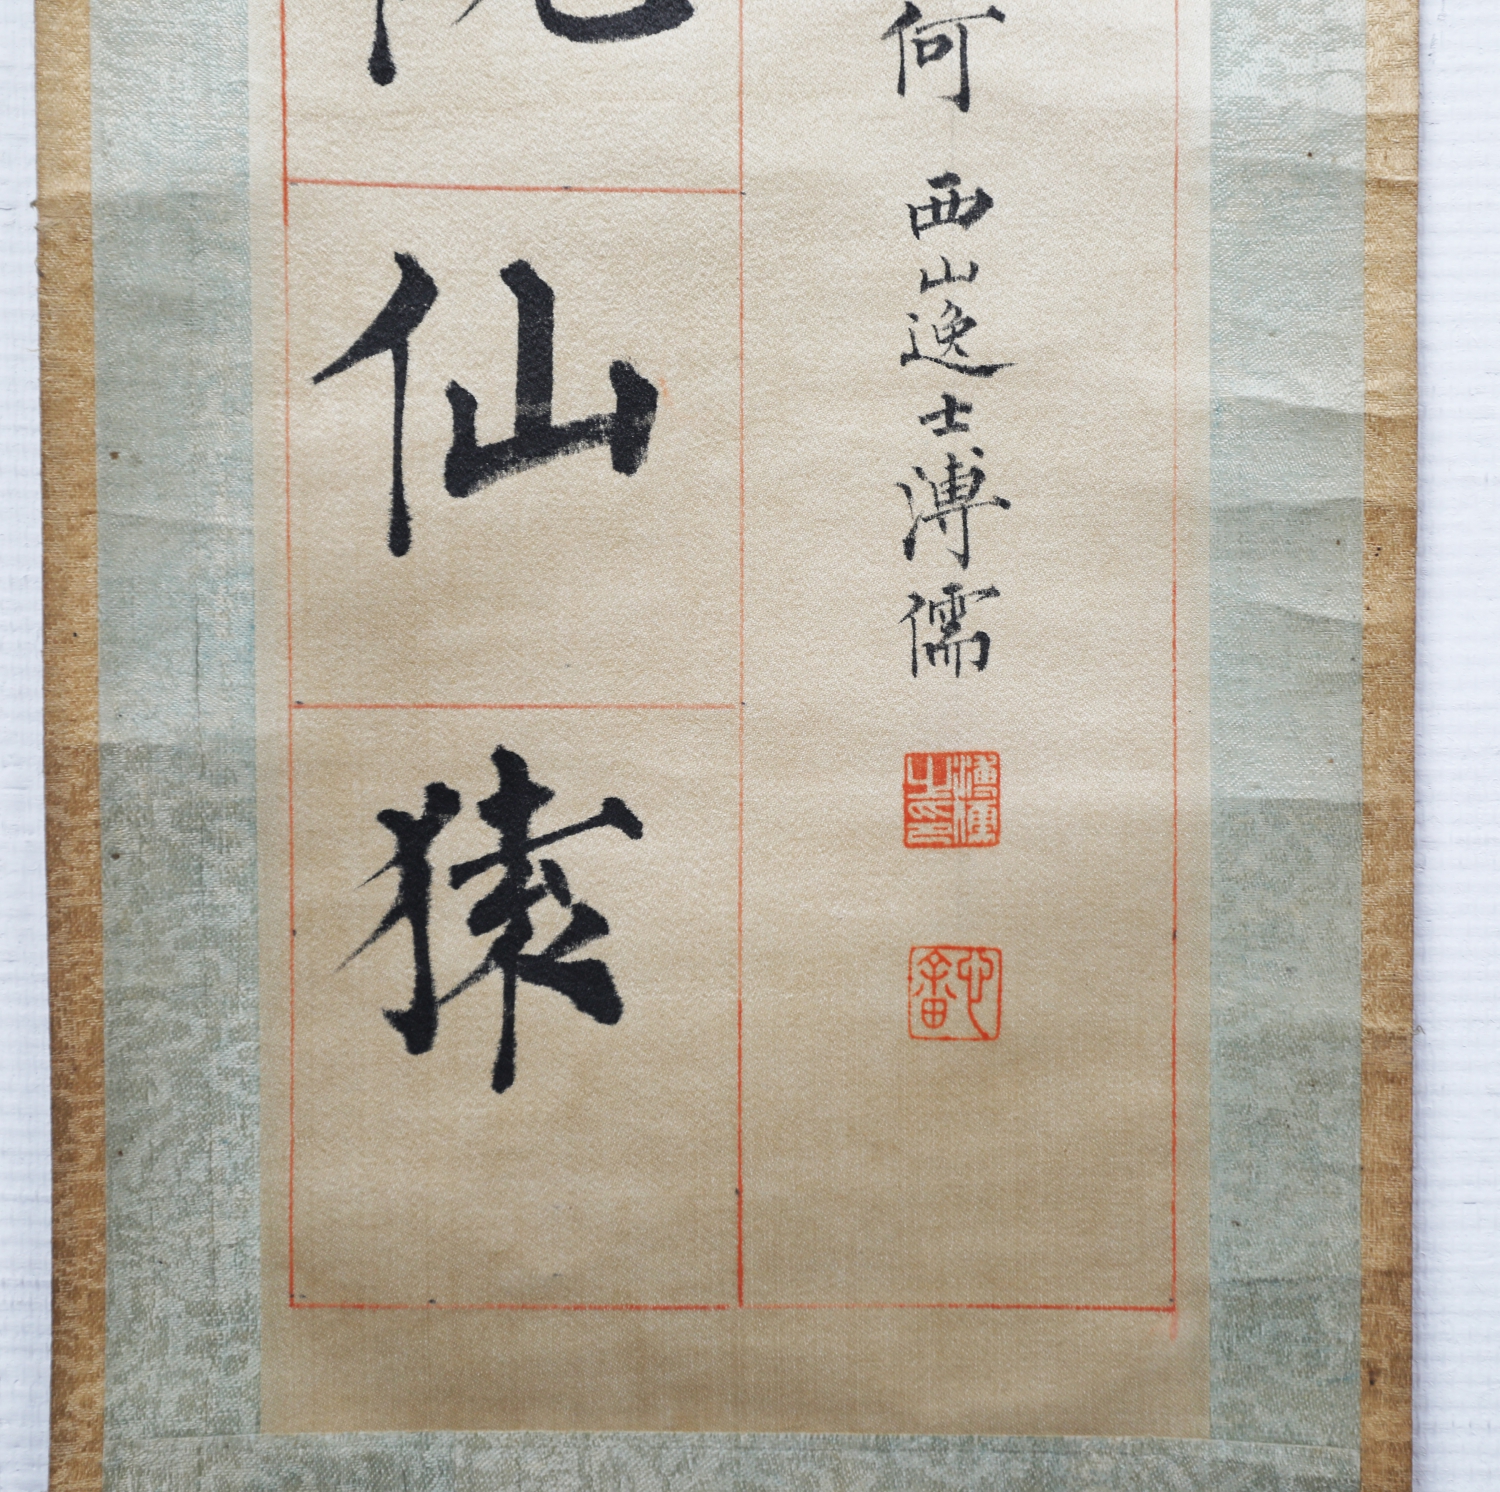 何 西山逸士溥儒
溥儒之印
心畬
仙猿